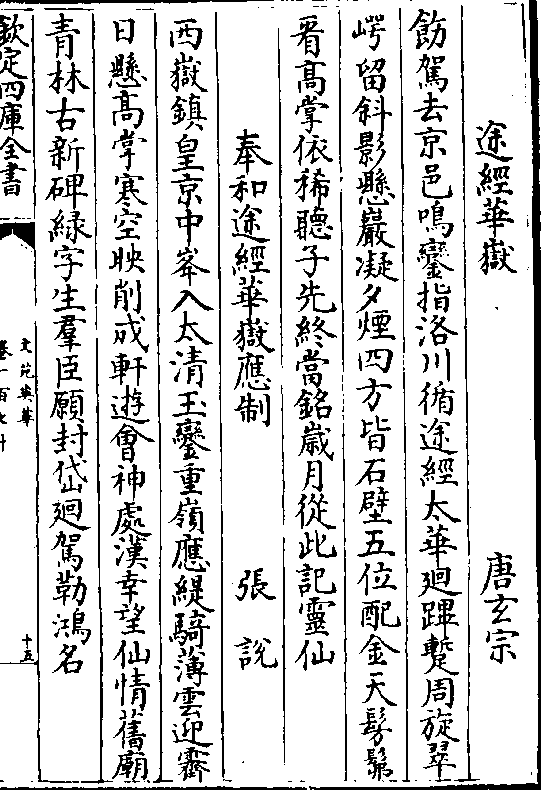 途經華嶽　唐玄宗
飭駕去京邑鳴鑾指洛川循途經太華廻蹕蹔周旋翠
崿留斜影懸巖凝夕煙四方皆石壁五位配金天髣髴
看高掌依稀聽子先終當銘歲月從此記靈仙
奉和途經華嶽應制　張說
西嶽鎮皇京中峯入太清玉鑾重嶺應緹騎薄雲迎霽
日懸高掌寒空映削成軒遊會神處漢幸望仙情舊廟
青林古新碑綠字生羣臣願封岱廻駕勒鴻名
欽定四庫全書
文苑英華
卷一百七十
十五